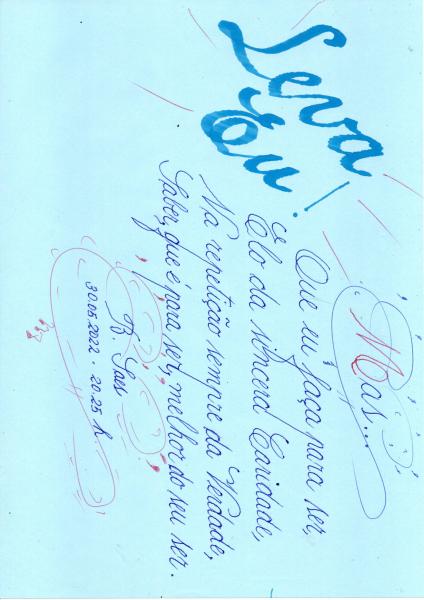 Leva
Eu!
Mas...
Que eu faça para ser,
Elo da sincera Caridade,
Na repetição sempre da Verdade,
Saber, que é para ser, melhor do seu ser.
B. Saes
30.05.2022 - 20.25 h